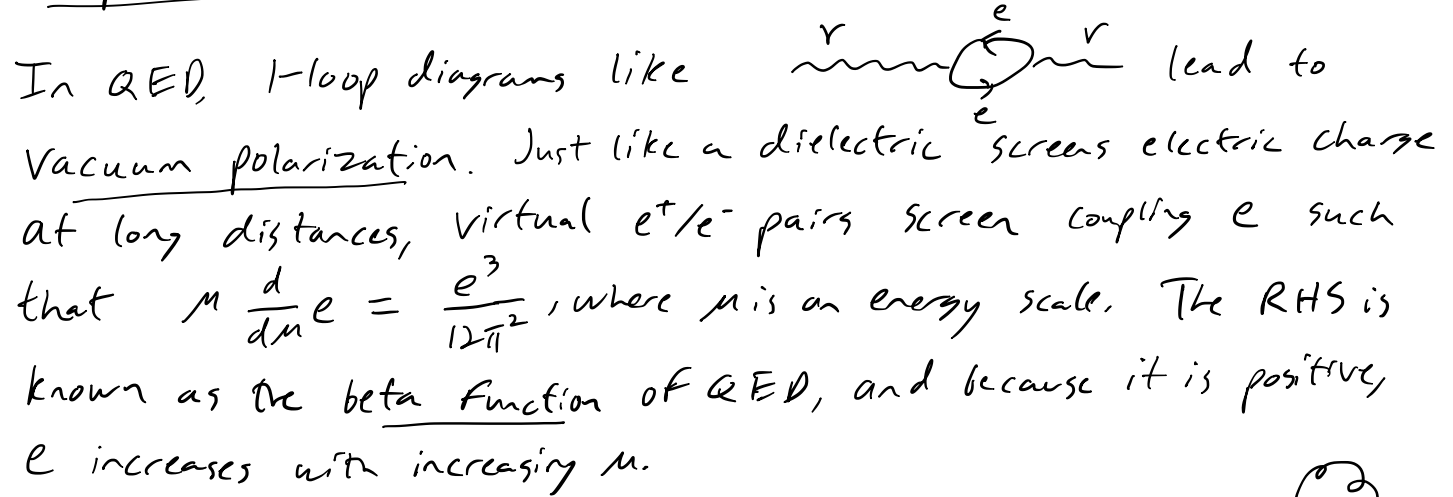 In QED, 1-loop diagrams like γ e e γ lead to
vacuum polarization. Just like a dielectric screens electric charge
at long distances, virtual e⁺/e⁻ pairs screen coupling e such
that μ d/dμ e = e³/12π², where μ is an energy scale. The RHS is
known as the beta function of QED, and because it is positive,
e increases with increasing μ.